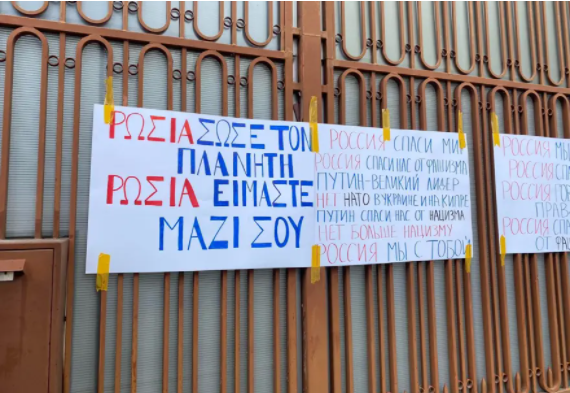 ΡΩΣΙΑ ΣΩΣΕ ΤΟΝ
ΠΛΑΝΗΤΗ
ΡΩΣΙΑ ΕΙΜΑΣΤΕ
ΜΑΖΙ ΣΟΥ
РОССИЯ СПАСИ МИ
РОССИЯ СПАСИ НАС ОТ ФАШИЗМА
ПУТИН-ВЕЛИКИЙ ЛИДЕР
НЕТ НАТО В УКРАИНЕ И НА КИПРЕ
ПУТИН СПАСИ НАС ОТ НАЦИЗМА
НЕТ БОЛЬШЕ НАЦИЗМУ
РОССИЯ МЫ С ТОБОЙ
РОССИЯ МЫ
РОССИЯ
РОССИЯ
ПРАВ
РОССИЯ
ОТ